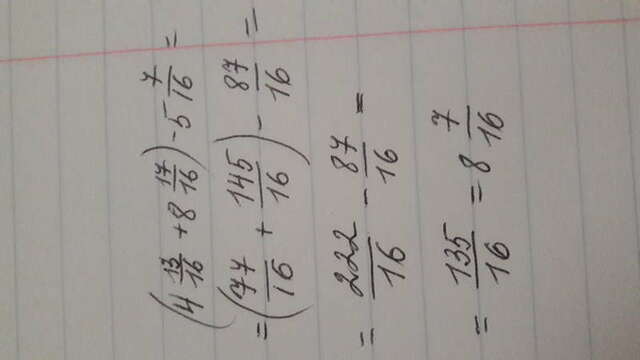 (4 13/16 + 8 17/16) - 5 7/16 =
= (77/16 + 145/16) - 87/16 =
= 222/16 - 87/16 =
= 135/16 = 8 7/16